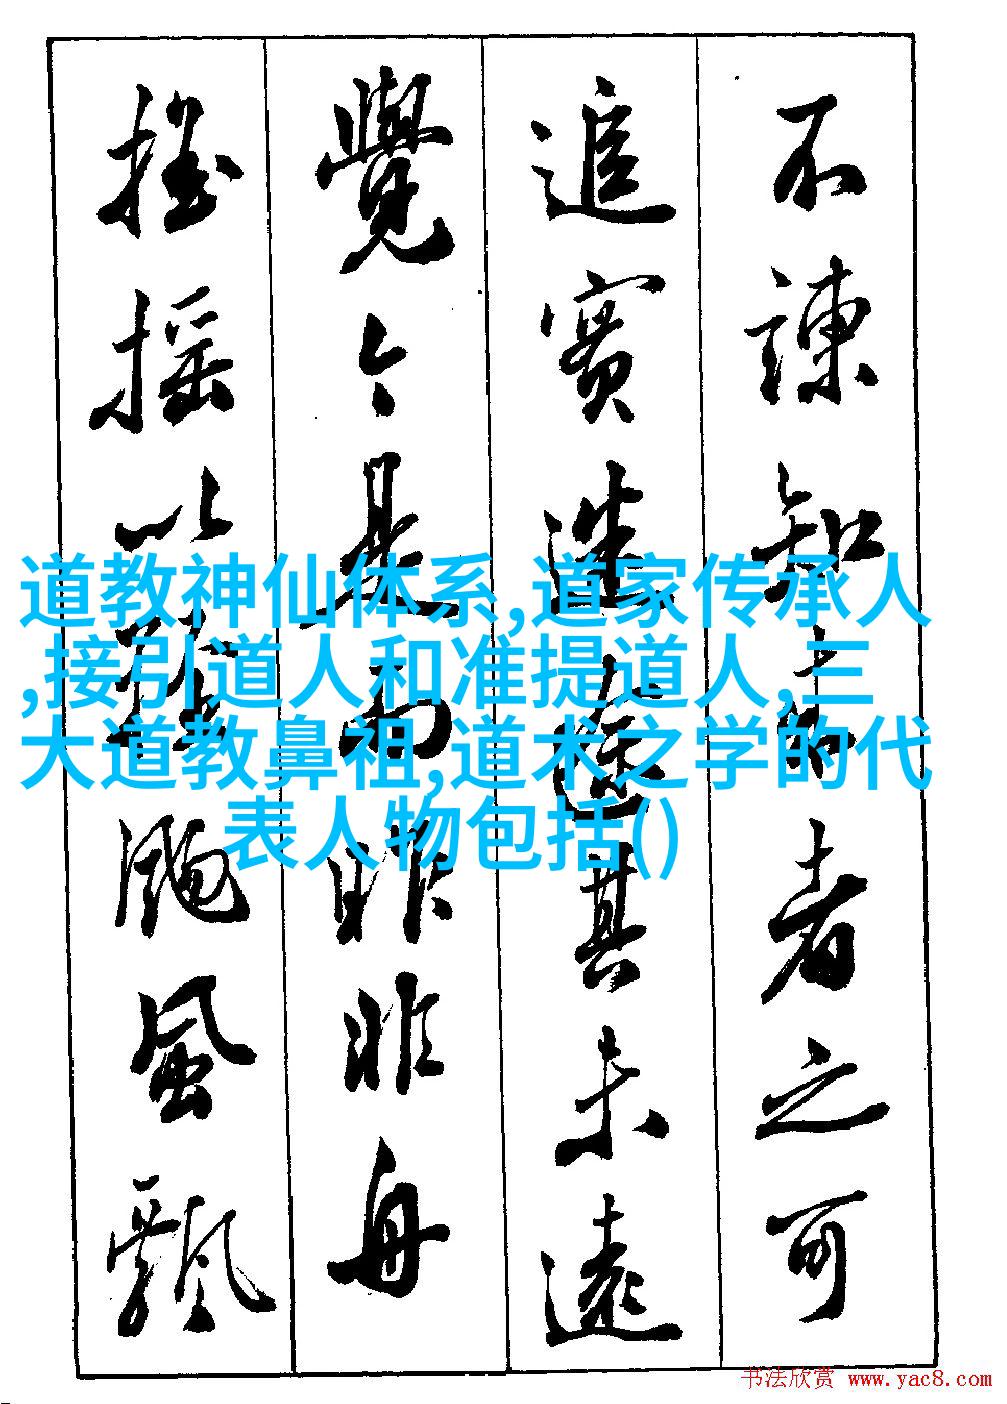 不諫知来者之可
追實迷途其未遠
覺今是而昨非舟
摇摇以輕颺風飄
道教神仙体系,道家传承人
,接引道人和准提道人,三
大道教鼻祖,道术之学的代
表人物包括()
书法欣赏 www.yac8.com